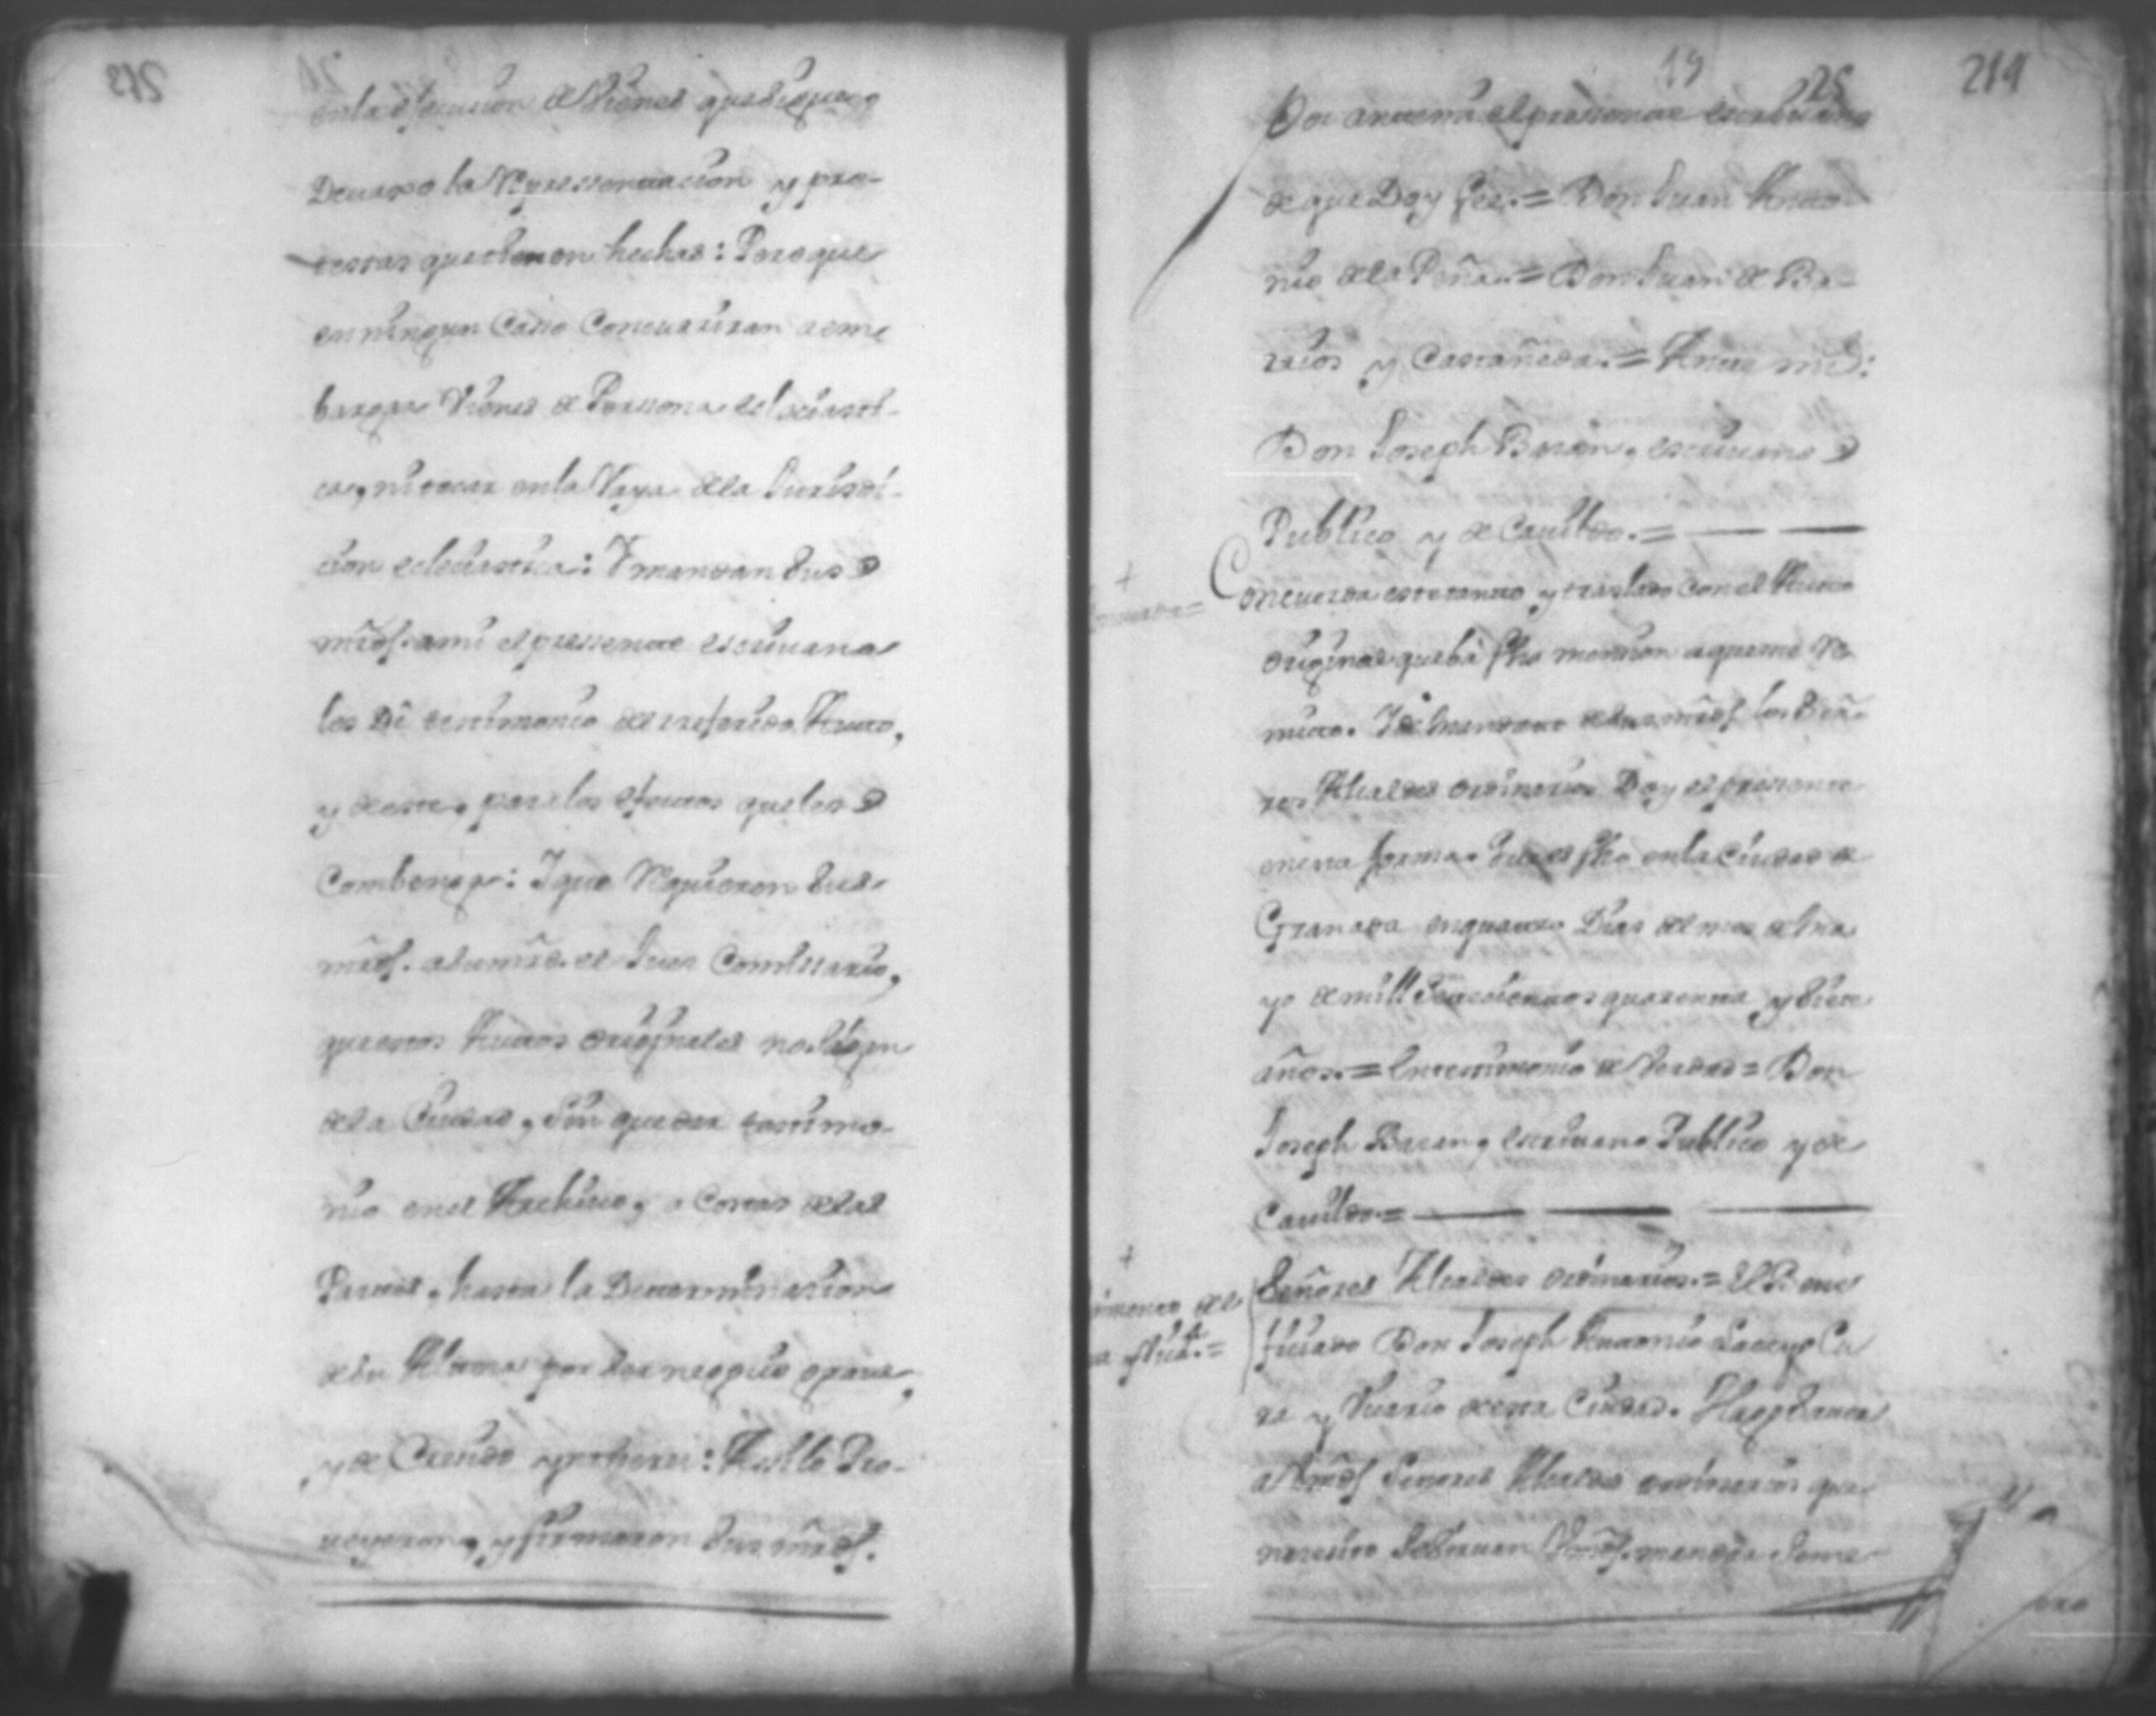 en la essecucion de Vienes que siguen
Devaxo la Repressentacion y pro-
testas que tienen hechas: Pero que
en ningun Casso Concurriran a em-
bargar Vienes de Perssona eclesiasti-
ca, ni tocar en la Raya de la Jurisdi-
cion eclesiastica: Y mandan sus
mrds. a mi el pressente escrivano
les Dê testimonio del referido Auto,
y de este, para los efectos que les
Combenga: Y que Requieren sus
mrds. a su mrd. el Juez Comissario,
que estos Autos originales no salgan
de la Ciudad, sin quedar testimo-
nio en el Archivo, a Costas de las
Partes, hasta la Determinacion
de su Alteza por ser negocio grave,
y de Creido ynteres: Assi lo Pro-
veyeron, y firmaron sus mrds.
213
19
25
214
Por ante mi el pressente escribano
de que Doy fee. = Don Juan Anto-
nio de la Peña. = Don Juan de Ba-
rrios y Castañeda. = Ante mi:
Don Joseph Bazan, escrivano
Publico y de Cavildo. =
Concuerda este tanto y traslado con el Auto
original que hà fho mencion a que me Re
mito. Y de mandato de sus mrds los Seño-
res Alcaldes ordinarios Doy el pressente
en esta forma. Que es fho en la Ciudad de
Granada en quatro Dias del mes de Ma
yo de mill Setecientos quarenta y siete
años. = En testimonio de Verdad = Don
Joseph Bazan, escrivano Publico y de
Cavildo. =
Señores Alcaldes ordinarios. = El Bene
ficiado Don Joseph Antonio Lacayo Cu
ra y Vicario de esta Ciudad. Hago Saver
a Vmds Señores Alcaldes ordinarios que
nesecito se sirvan Vmds. mandar se me